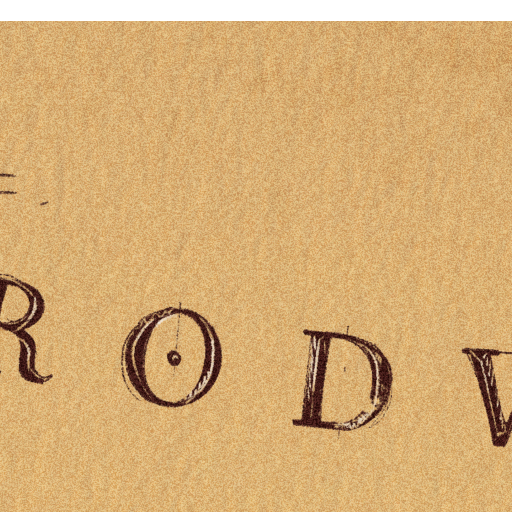 R O D W